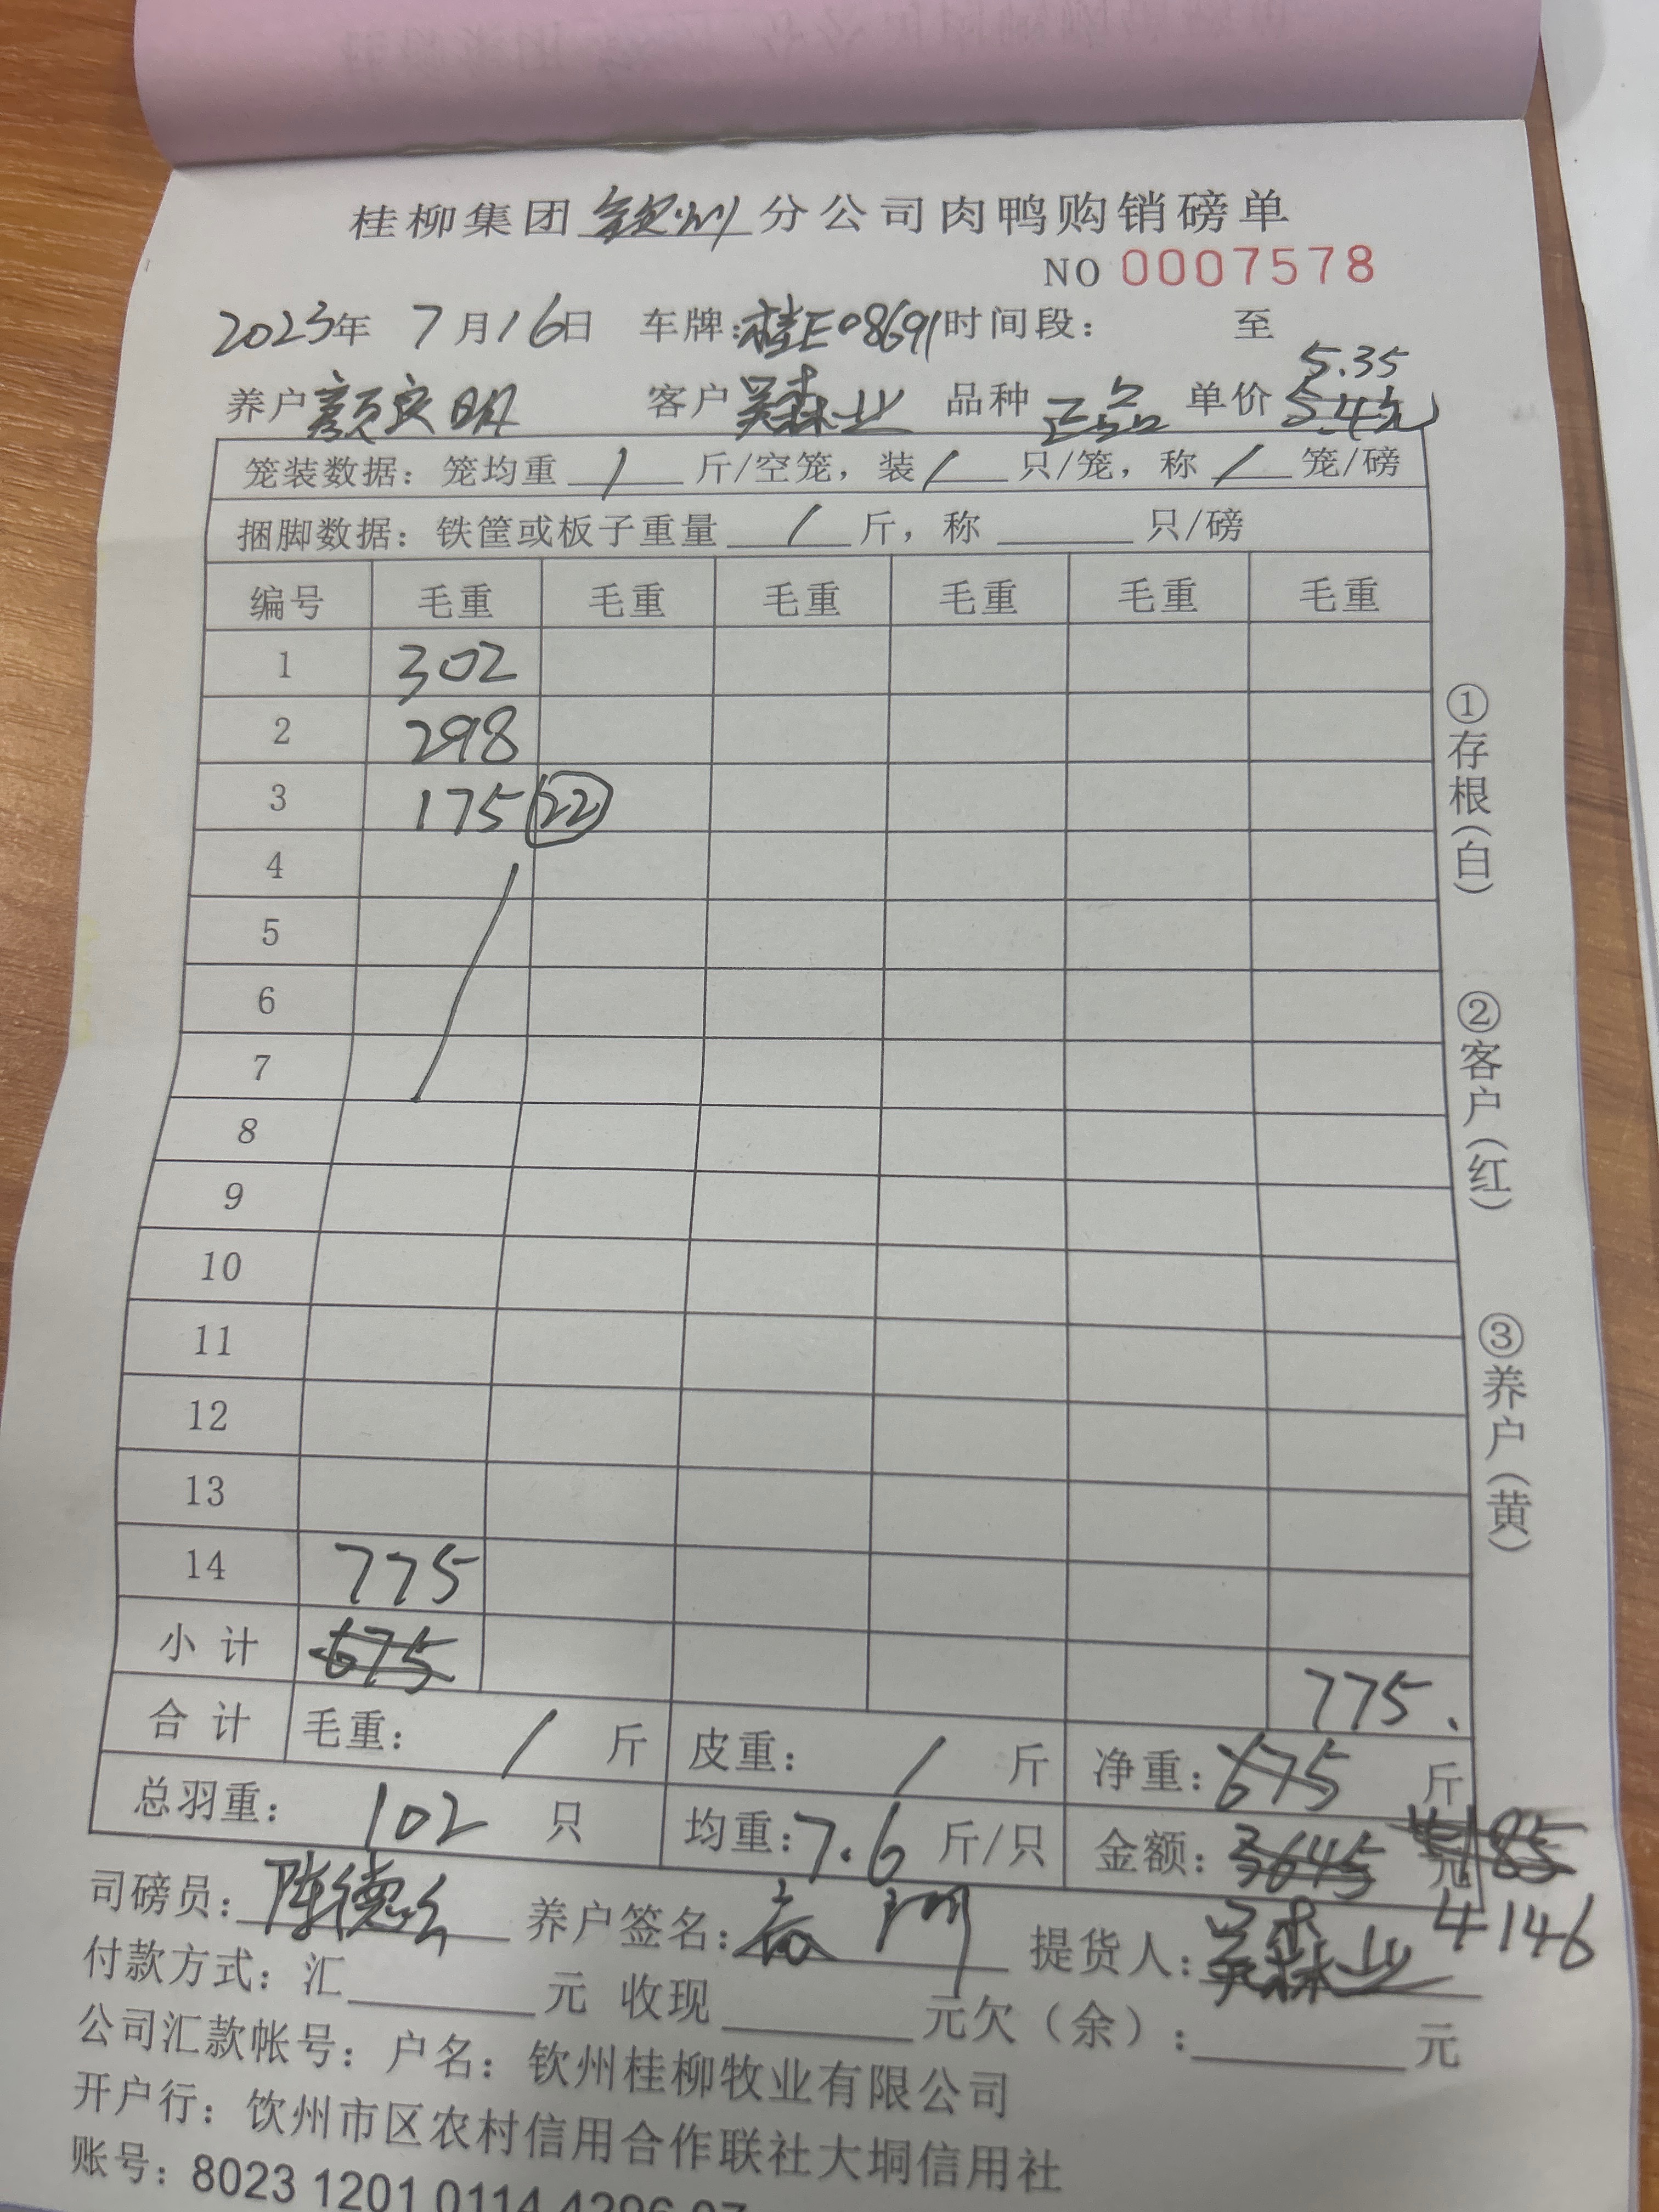 桂柳集团钦州分公司肉鸭购销磅单
NO 0007578
2023年 7月16日 车牌:桂E08691时间段: 至
5.35
养户颜良明 客户吴森业 品种正品 单价5.4元
笼装数据: 笼均重 / 斤/空笼, 装 / 只/笼, 称 / 笼/磅
捆脚数据: 铁筐或板子重量 / 斤, 称 只/磅
编号 毛重 毛重 毛重 毛重 毛重 毛重
1 302
2 298
3 175 22
4
5
6
7
8
9
10
11
12
13
14 775
小计 675 775.
合计 毛重: / 斤 皮重: / 斤 净重: 675 斤
总羽重: 102 只 均重:7.6 斤/只 金额: 3645 元 4185
4146
司磅员: 陈德 养户签名: 提货人: 吴森业
付款方式: 汇 元 收现 元欠(余): 元
公司汇款帐号: 户名: 钦州桂柳牧业有限公司
开户行: 钦州市区农村信用合作联社大垌信用社
账号: 8023 1201 0114 4296 97
①存根(白)
②客户(红)
③养户(黄)